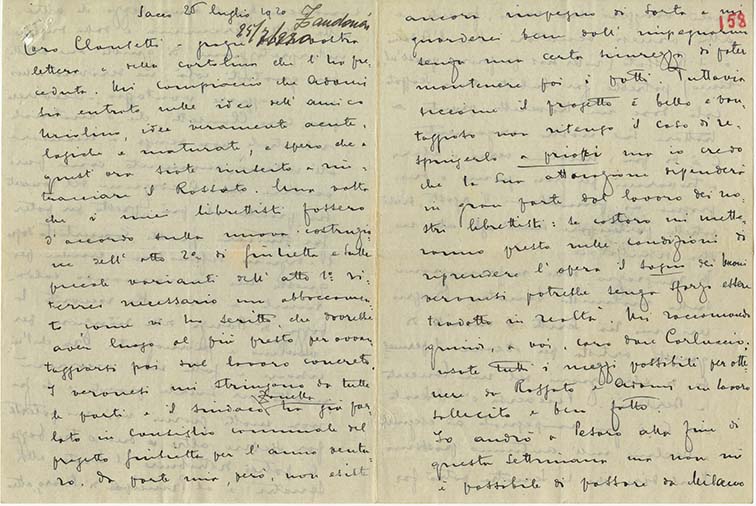 Sacco 26 luglio 1920
Zandonai
25/7/1920
Caro Clausetti - grazie vostra
lettera e della cartolina che l'ha pre-
ceduta. Mi compiaccio che Adami
sia entrato nelle idee dell'amico
Nicolino, idee veramente acute,
logiche e maturate, e spero che a
quest'ora siate riuscito a rin-
tracciare il Rossato. Una volta
che i miei librettisti fossero
d'accordo sulla nuova costruzio-
ne dell'atto 2º di Giulietta e sulle
piccole varianti dell'atto 1º ri-
terrei necessario un abboccamen-
to come vi ho scritto, che dovrebbe
aver luogo al più presto per avvan-
taggiarsi poi sul lavoro concreto.
I veronesi mi stringono da tutte
le parti e il sindaco Zanella ha già par-
lato in Consiglio comunale del
progetto Giulietta per l'anno ventu-
ro. Da parte mia, però, non esiste
158
ancora impegno di sorta e mi
guarderei bene dall'impegnarmi
senza una certa sicurezza di poter
mantenere poi i patti. Tuttavia
siccome il progetto è bello e van-
taggioso non ritengo il caso di re-
spingerlo a priori ma io credo
che la sua attuazione dipenderà
in gran parte dal lavoro dei no-
stri librettisti: se costoro mi mette-
ranno presto nelle condizioni di
riprendere l'opera il sogno dei buoni
veronesi potrebbe senza sforzo essere
tradotto in realtà. Mi raccomando
quindi, a voi, caro don Carluccio:
usate tutti i mezzi possibili per otte-
nere da Rossato e Adami un lavoro
sollecito e ben fatto.
Io andrò a Pesaro alla fine di
questa settimana ma non mi
è possibile di passare da Milano